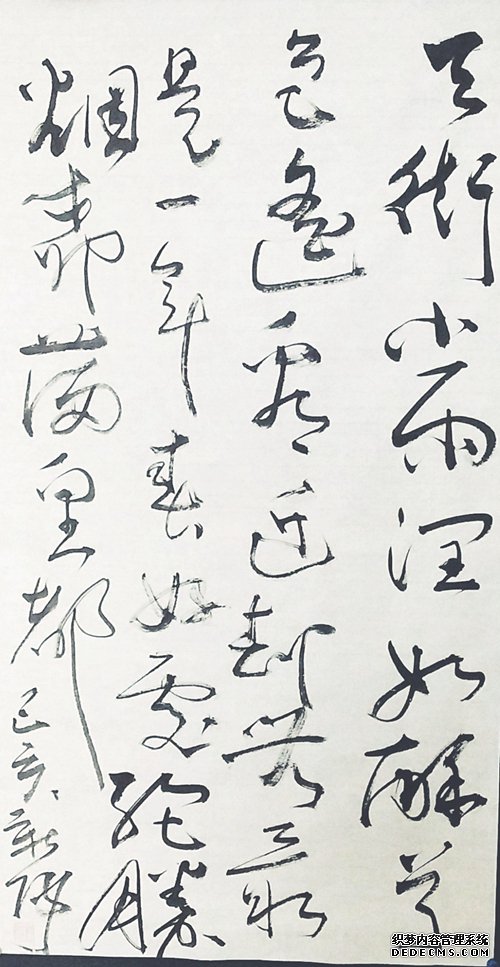 天街小雨潤如酥草
色遙看近却無最
是一年春好處絕勝
烟柳滿皇都
己亥
织梦内容管理系统
DEDECMS.COM